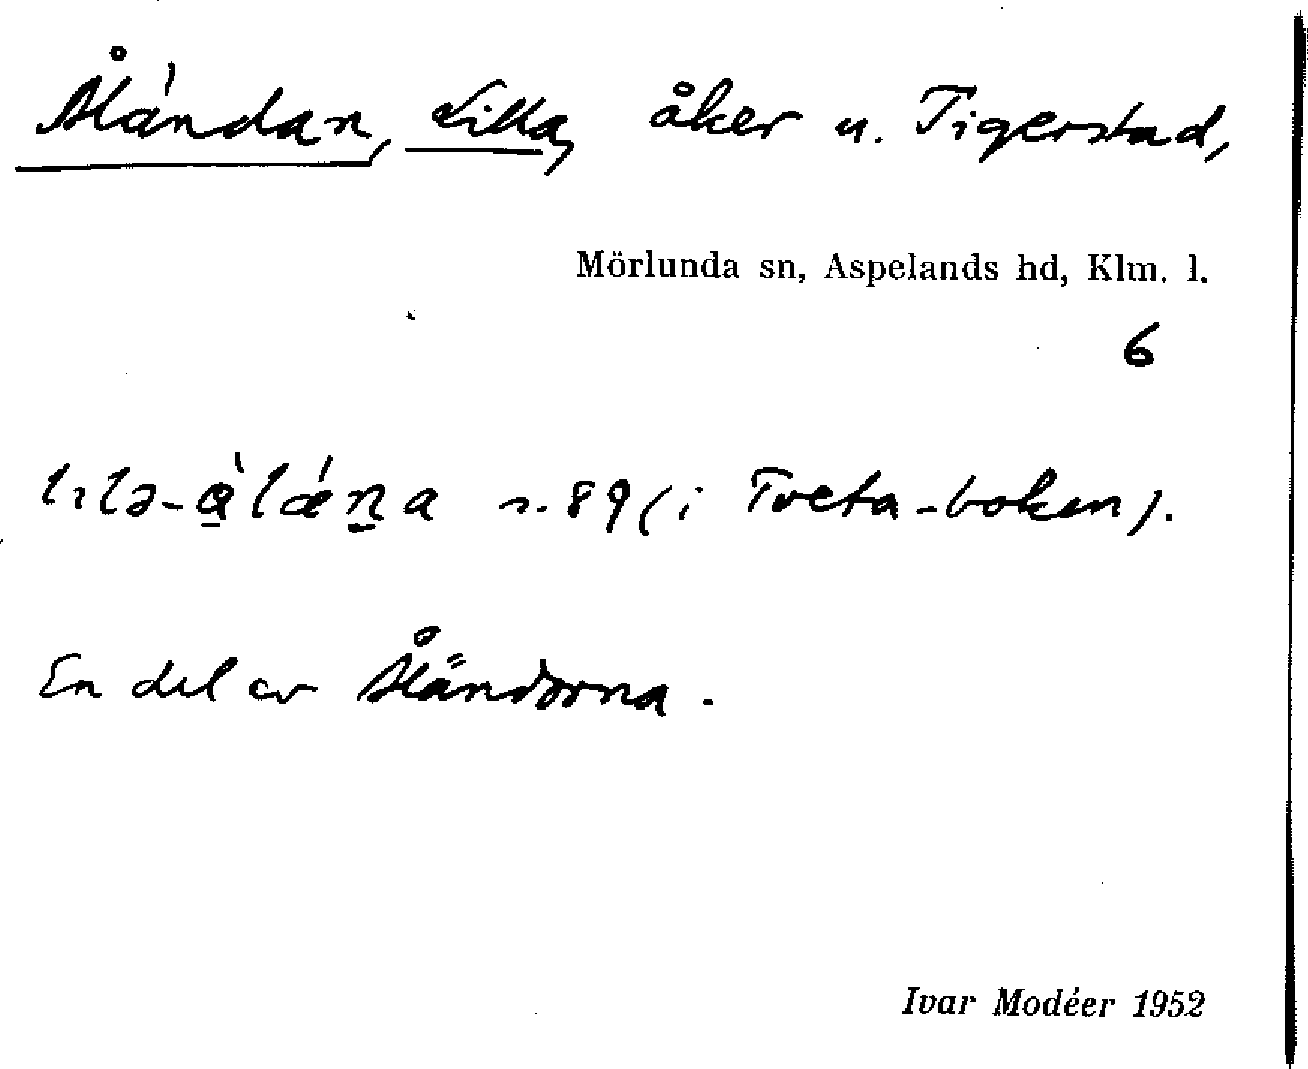 Åländan, Lilla, åker u. Tigerstad,
Mörlunda sn, Aspelands hd, Klm. l.
6
lılə-a̠̍̀lǽn̠a s. 89 (i Tveta-boken).
En del av Åländorna.
Ivar Modéer 1952